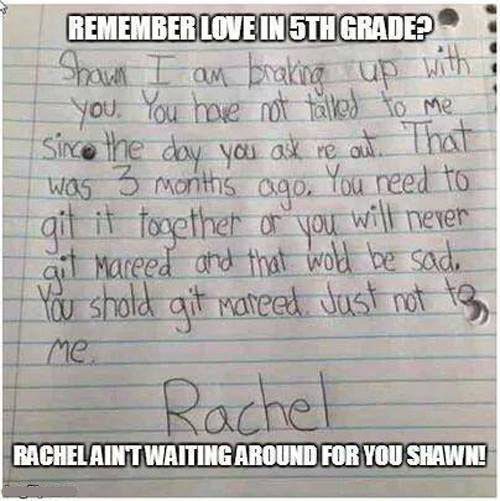 REMEMBER LOVE IN 5TH GRADE?
Shawn I am braking up with
you. You have not talked to me
since the day you ask me out. That
was 3 months ago. You need to
git it together or you will never
git mareed and that wold be sad.
You shold git mareed. Just not to
me.
Rachel
RACHEL AIN'T WAITING AROUND FOR YOU SHAWN!